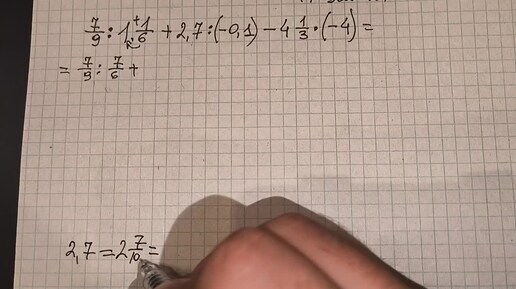 7/9 : 1 1/6 + 2,7 : (-0,1) - 4 1/3 · (-4) =
= 7/9 : 7/6 +
2,7 = 2 7/10 =